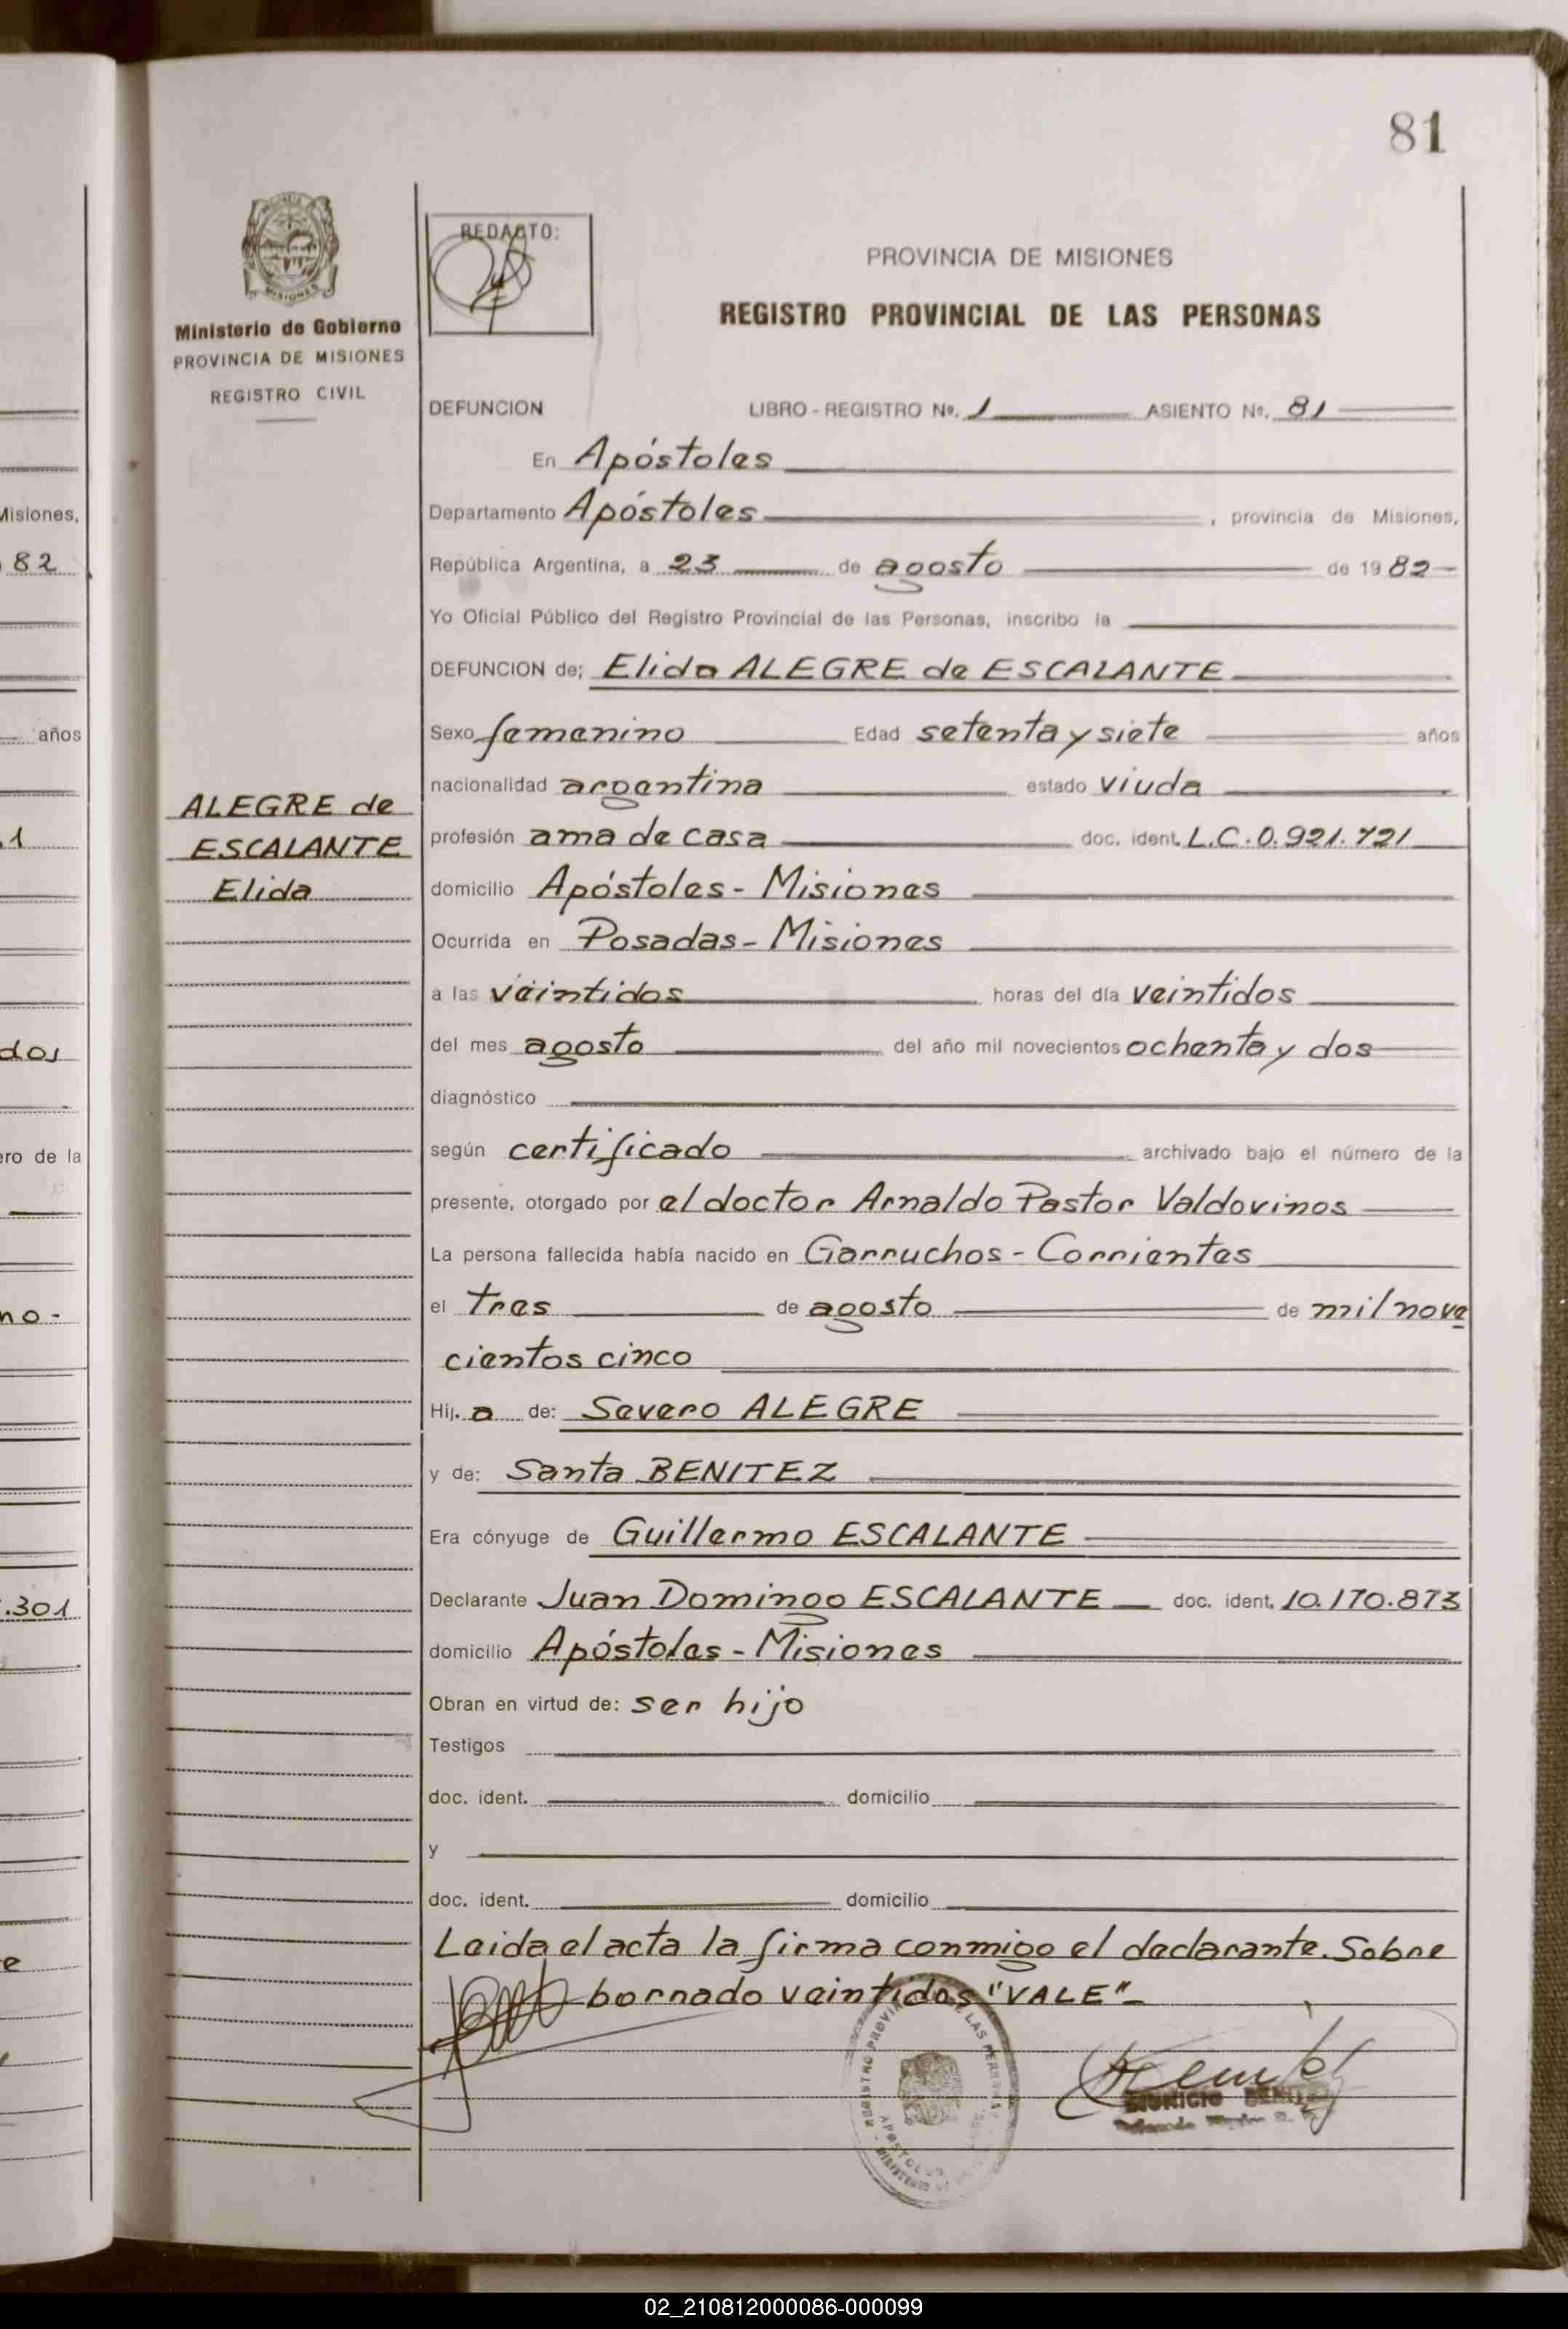 81
Ministerio de Gobierno
PROVINCIA DE MISIONES
REGISTRO CIVIL
REDACTO:
PROVINCIA DE MISIONES
REGISTRO PROVINCIAL DE LAS PERSONAS
DEFUNCION LIBRO - REGISTRO Nº. 1 ASIENTO Nº. 81
En Apóstoles
Departamento Apóstoles, provincia de Misiones,
República Argentina, a 23 de agosto de 1982
Yo Oficial Público del Registro Provincial de las Personas, inscribo la
DEFUNCION de; Elida ALEGRE de ESCALANTE
Sexo femenino Edad setenta y siete años
nacionalidad argentina estado viuda
ALEGRE de
ESCALANTE
Elida
profesión ama de casa doc. ident. L.C. 0.921.721
domicilio Apóstoles - Misiones
Ocurrida en Posadas - Misiones
a las veintidos horas del día veintidos
del mes agosto del año mil novecientos ochenta y dos
diagnóstico
según certificado archivado bajo el número de la
presente, otorgado por el doctor Arnaldo Pastor Valdovinos
La persona fallecida había nacido en Garruchos - Corrientes
el tres de agosto de mil nove
cientos cinco
Hij. a de: Severo ALEGRE
y de: Santa BENITEZ
Era cónyuge de Guillermo ESCALANTE
Declarante Juan Domingo ESCALANTE doc. ident. 10.170.873
domicilio Apóstoles - Misiones
Obran en virtud de: ser hijo
Testigos
doc. ident. domicilio
y
doc. ident. domicilio
Leida el acta la firma conmigo el declarante. Sobre
borrado veintidos "VALE"
Misiones,
82
años
1
dos
ero de la
no -
.301
e
02_210812000086-000099